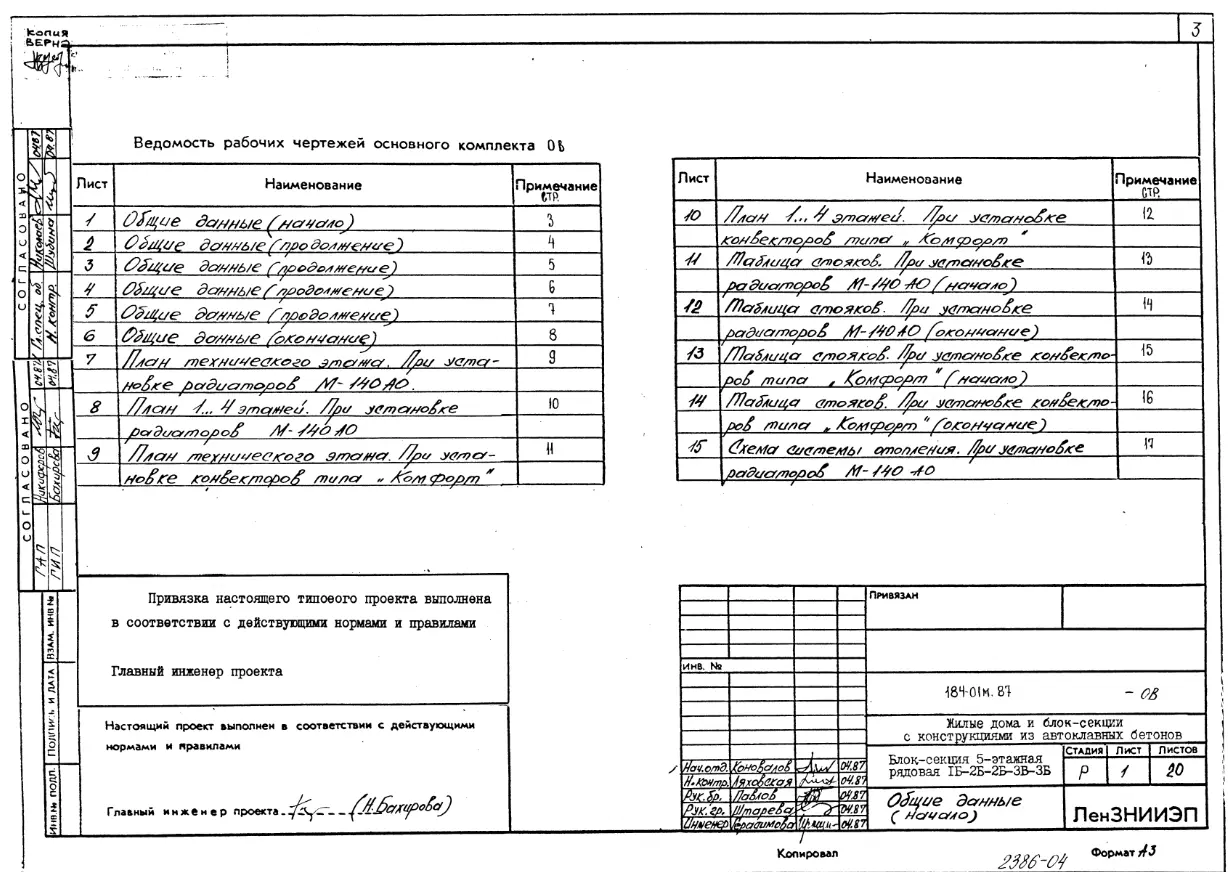 КОПИЯ
ВЕРНА
3
Ведомость рабочих чертежей основного комплекта ОВ
Лист Наименование Примечание
СТР.
1 Общие данные (начало) 3
2 Общие данные (продолжение) 4
3 Общие данные (продолжение) 5
4 Общие данные (продолжение) 6
5 Общие данные (продолжение) 7
6 Общие данные (окончание) 8
7 План технического этажа. При уста- 9
новке радиаторов М-140 АО.
8 План 1...4 этажей. При установке 10
радиаторов М-140 АО
9 План технического этажа. При уста- 11
новке конвекторов типа „Комфорт"
Лист Наименование Примечание
СТР.
10 План 1...4 этажей. При установке 12
конвекторов типа „Комфорт"
11 Таблица стояков. При установке 13
радиаторов М-140 АО (начало)
12 Таблица стояков. При установке 14
радиаторов М-140 АО (окончание)
13 Таблица стояков. При установке конвекто- 15
ров типа „Комфорт" (начало)
14 Таблица стояков. При установке конвекто- 16
ров типа „Комфорт" (окончание)
15 Схема системы отопления. При установке 17
радиаторов М-140 АО
СОГЛАСОВАНО
Гл.спец. об. Николаев 04.87
Н.контр. Шубина 04.87
СОГЛАСОВАНО
ГАП Никифоров 04.87
ГИП Бахирова 04.87
ВЗАМ. ИНВ №
Подпись и дата
Инв.№ подл.
Привязка настоящего типового проекта выполнена
в соответствии с действующими нормами и правилами
Главный инженер проекта
Настоящий проект выполнен в соответствии с действующими
нормами и правилами
Главный инженер проекта (Н.Бахирова)
Привязан
Инв. №
184-01м.87 - ОВ
Жилые дома и блок-секции
с конструкциями из автоклавных бетонов
Блок-секция 5-этажная
рядовая 1Б-2Б-2Б-3В-3Б
Стадия Лист Листов
Р 1 20
Нач.отд. Коновалов 04.87
Н.контр. Ляховская 04.87
Рук.бр. Павлов 04.87
Рук.гр. Штарева 04.87
Инженер Герасимова 04.87
Общие данные
(начало)
ЛенЗНИИЭП
Копировал
2386-04
Формат А3